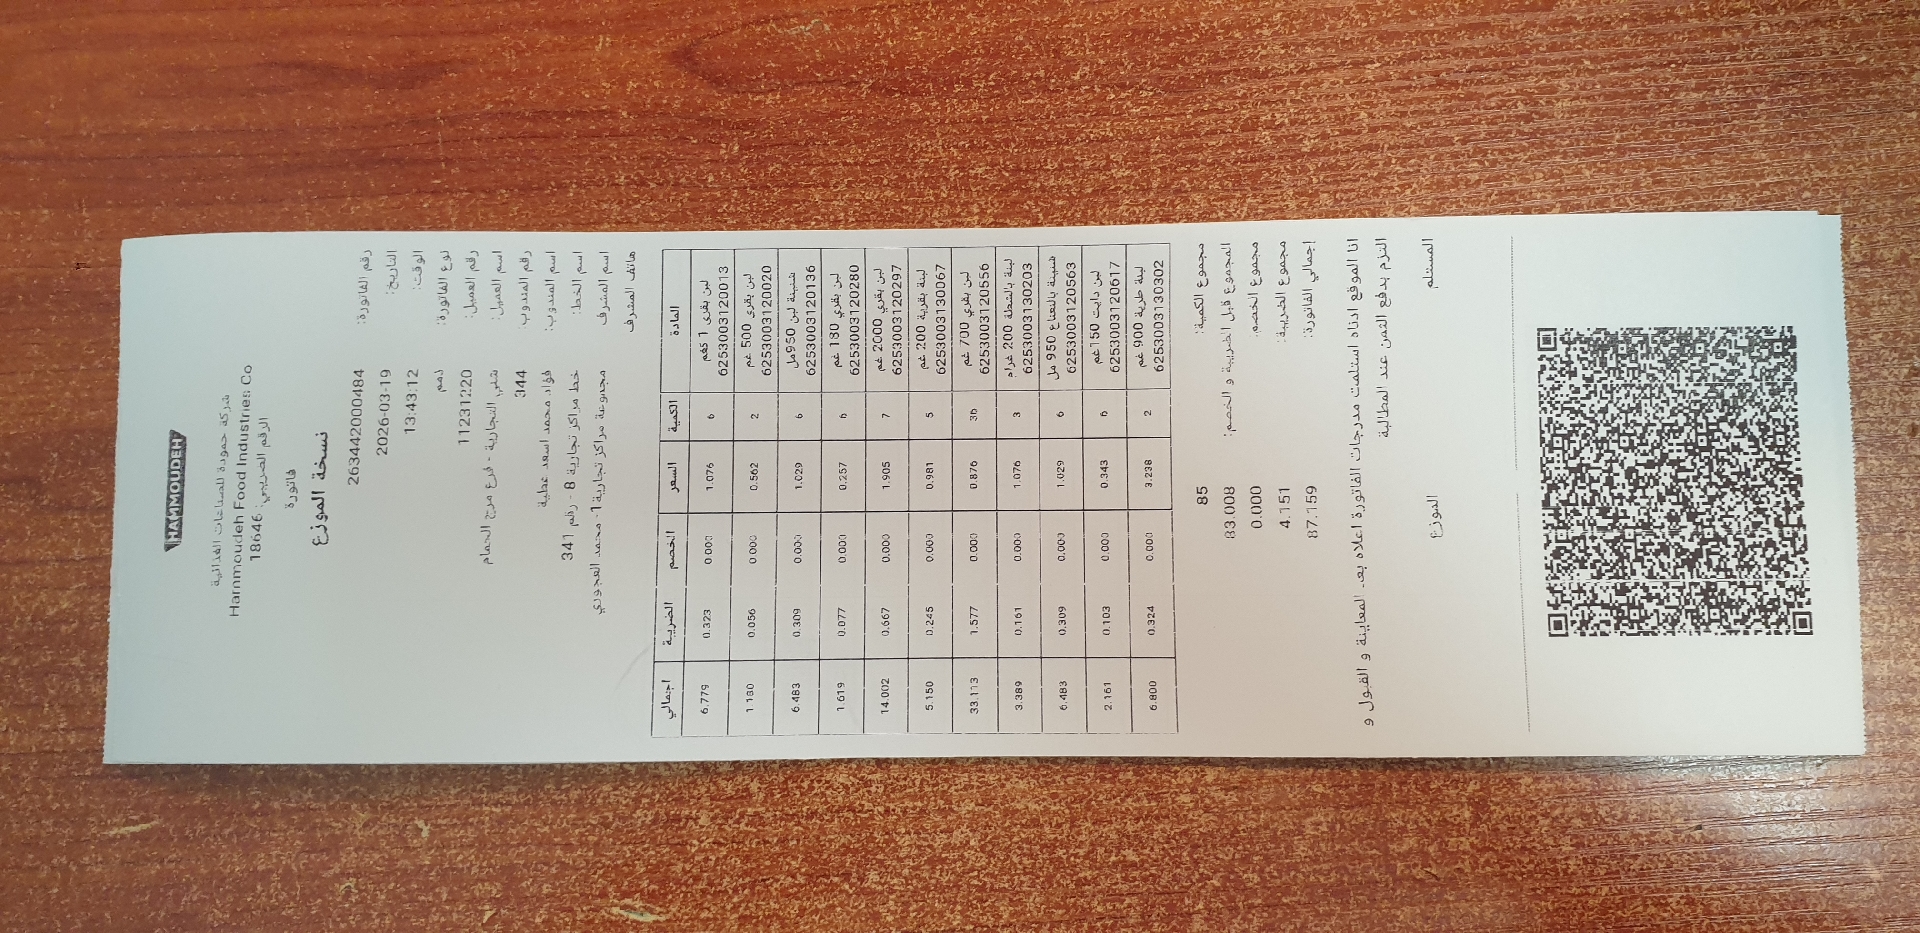 HAMMOUDEH
شركة حمودة للصناعات الغذائية
Hammoudeh Food Industries Co
الرقم الضريبي: 18646
فاتورة
نسخة الموزع
رقم الفاتورة: 263442000484
التاريخ: 2026-03-19
الوقت: 13:43:12
لوع الفاتورة: ذمم
رقم العميل: 11231220
اسم العميل: شلبي التجارية - فرع مرج الحمام
رقم المندوب: 344
اسم المندوب: فؤاد محمد اسعد عطية
اسم الخط: خط مراكز تجارية 8 - رقم 341
اسم المشرف مجموعة مراكز تجارية 1- محمد العجوري
هاتف المشرف
المادة الكمية السعر الخصم الضريبة اجمالي
لبن بقري 1 كغم
6253003120013 6 1.076 0.000 0.323 6.779
لبن بقري 500 غم
6253003120020 2 0.562 0.000 0.056 1.180
شنينة لبن 950مل
6253003120136 6 1.029 0.000 0.309 6.483
لبن بقري 180 غم
6253003120280 6 0.257 0.000 0.077 1.619
لبن بقري 2000 غم
6253003120297 7 1.905 0.000 0.667 14.002
لبنة بقرية 200 غم
6253003130067 5 0.981 0.000 0.245 5.150
لبن بقري 700 غم
6253003120556 36 0.876 0.000 1.577 33.113
لبنة بالشطة 200 غرام
6253003130203 3 1.076 0.000 0.161 3.389
شنينة بالنعناع 950 مل
6253003120563 6 1.029 0.000 0.309 6.483
لبن دايت 150غم
6253003120617 6 0.343 0.000 0.103 2.161
لبنة طرية 900 غم
6253003130302 2 3.238 0.000 0.324 6.800
مجموع الكمية: 85
المجموع قبل الضريبة و الخصم: 83.008
مجموع الخصم: 0.000
مجموع الضريبة: 4.151
إجمالي الفاتورة: 87.159
انا الموقع ادناه استلمت مدرجات الفاتورة اعلاه بعد المعاينة و القبول و
التزم بدفع الثمن عند المطالبة
المستلم الموزع